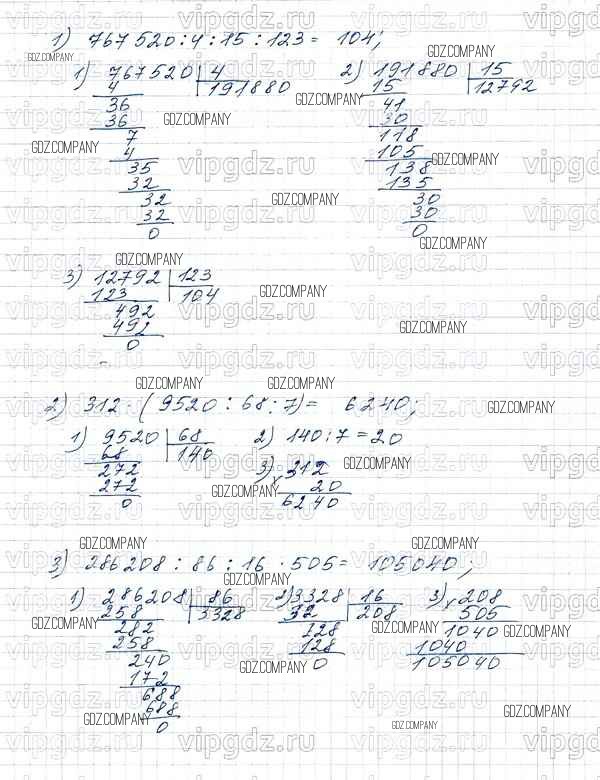 1) 767520 : 4 : 15 : 123 = 104;
1) 767520 | 4
4 | 191880
36
36
7
4
35
32
32
32
0
2) 191880 | 15
15 | 12792
41
30
118
105
138
135
30
30
0
3) 12792 | 123
123 | 104
492
492
0
2) 312 · (9520 : 68 : 7) = 6240;
1) 9520 | 68
68 | 140
272
272
0
2) 140 : 7 = 20
3) 312
× 20
6240
3) 286208 : 86 : 16 · 505 = 105040;
1) 286208 | 86
258 | 3328
282
258
240
172
688
688
0
2) 3328 | 16
32 | 208
128
128
0
3) × 208
505
1040
1040
105040
GDZ.COMPANY
vipgdz.ru